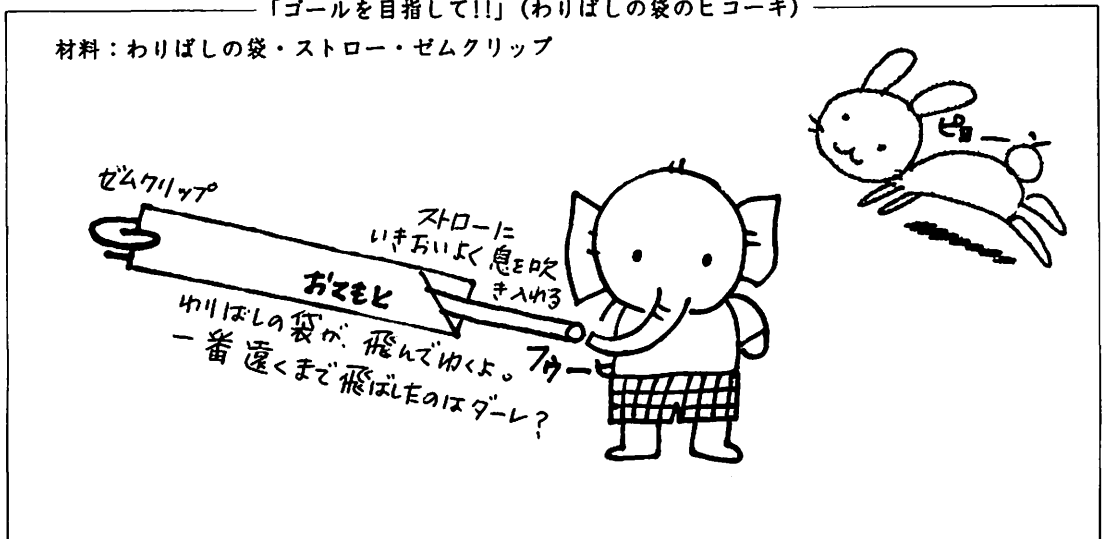 「ゴールを目指して!!」(わりばしの袋のヒコーキ)
材料：わりばしの袋・ストロー・ゼムクリップ
ピョーン
ゼムクリップ
ストローに
いきおいよく息を吹
き入れる
おてもと
わりばしの袋が、飛んでゆくよ。
一番遠くまで飛ばしたのはダーレ?
フゥーッ